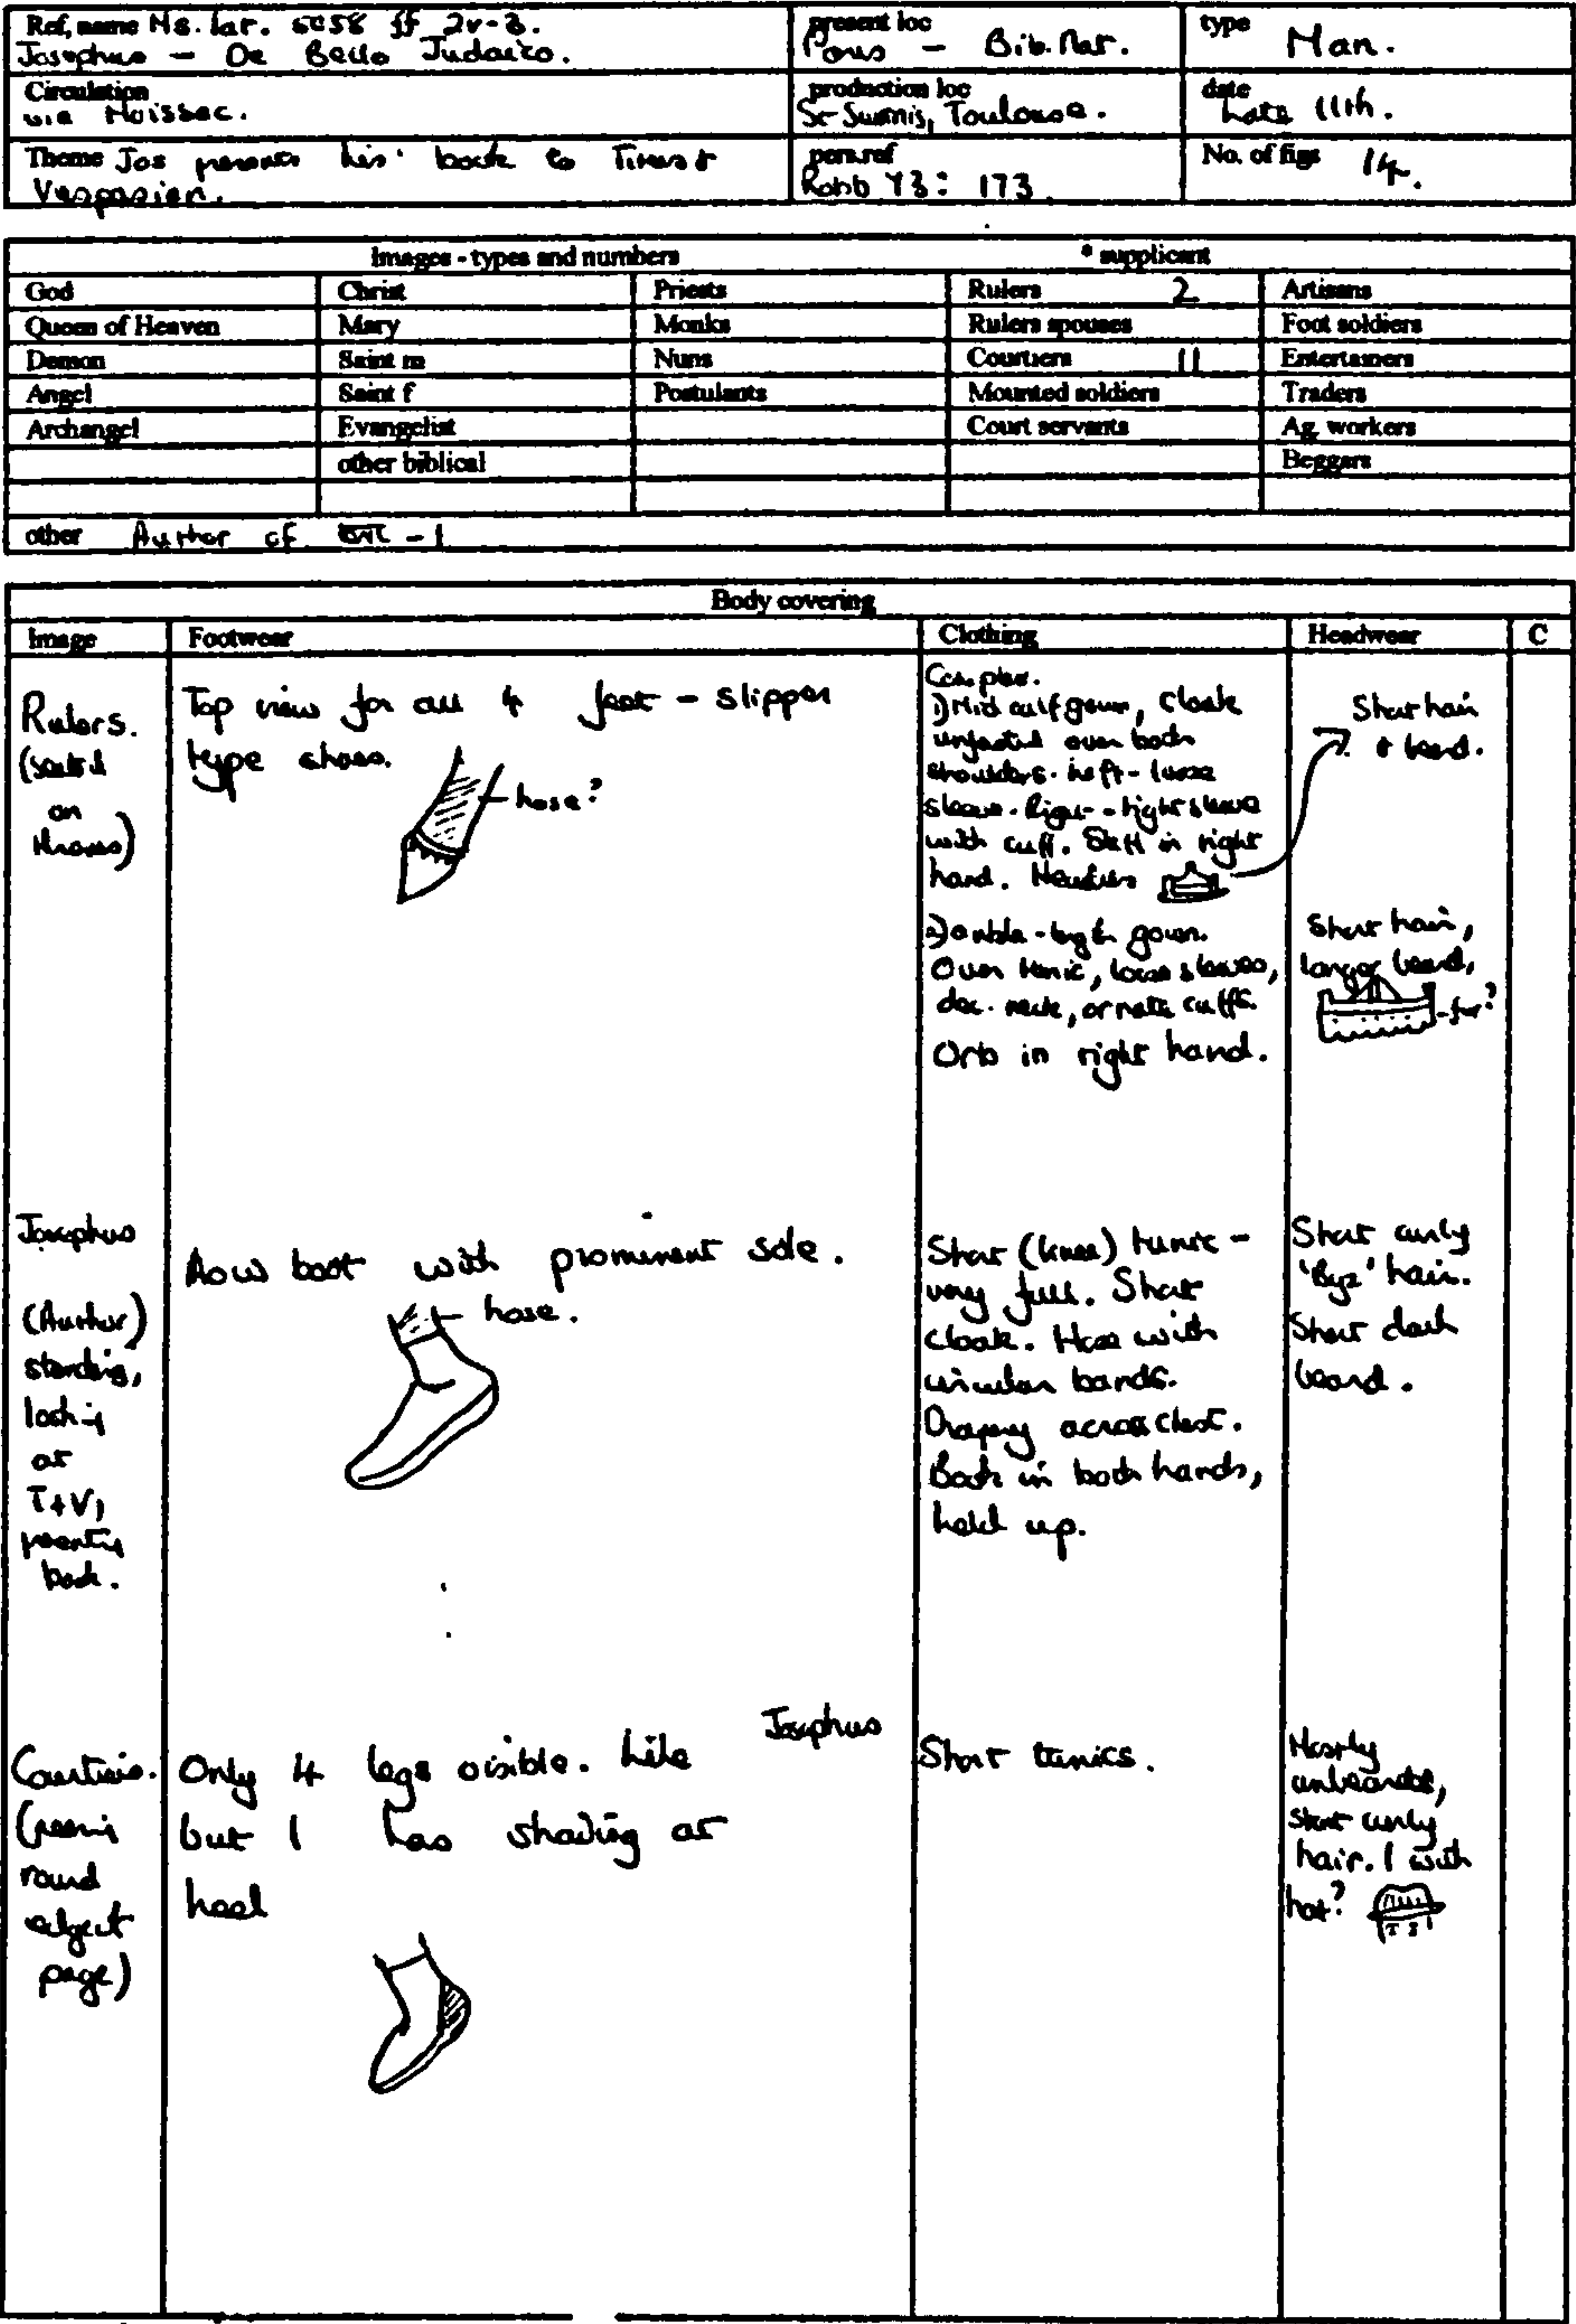 Ref, name Ms. Lat. 5058 ff 2v-3.
Josephus - De Bello Judaico.
present loc
Paris - Bib. Nat.
type
Man.
Circulation
via Moissac.
production loc
St Toulouse.
date
Late 11th.
Theme Jos presents his book to Titus +
Vespasian.
pers.ref
Robb 73: 173
No. of figs 14.
Images - types and numbers * supplicant
God Christ Priests Rulers 2 Artisans
Queen of Heaven Mary Monks Rulers spouses Foot soldiers
Demon Saint m Nuns Courtiers 11 Entertainers
Angel Saint f Postulants Mounted soldiers Traders
Archangel Evangelist Court servants Ag. workers
other biblical Beggars
other Author of - 1
Body covering
Image Footwear Clothing Headwear C
Rulers.
(seated
on
thrones)
Top view for all 4 feet - slipper
type shoes.
hose?
Complex.
1) Mid calf gown, cloak
unfastened over both
shoulders. Left - loose
sleeve. Right - tight sleeve
with cuff. Staff in right
hand.
Short hair
+ beard.
2) ankle-length gown.
Over tunic, loose sleeves,
dec. neck, ornate cuffs.
Orb in right hand.
Short hair,
longer beard,
-fur?
Josephus
(Author)
standing,
looking
at
T+V,
presenting
book.
Low boot with prominent sole.
hose.
Short (knee) tunic -
very full. Short
cloak. Hose with
circular bands.
Drapery across chest.
Book in both hands,
held up.
Short curly
'Byz' hair.
Short dark
beard.
Courtiers.
round
edge of
page)
Only 4 legs visible. Like Josephus
but 1 has shading at
heel
Short tunics.
Mostly
unbearded,
short curly
hair. 1 with
hat?